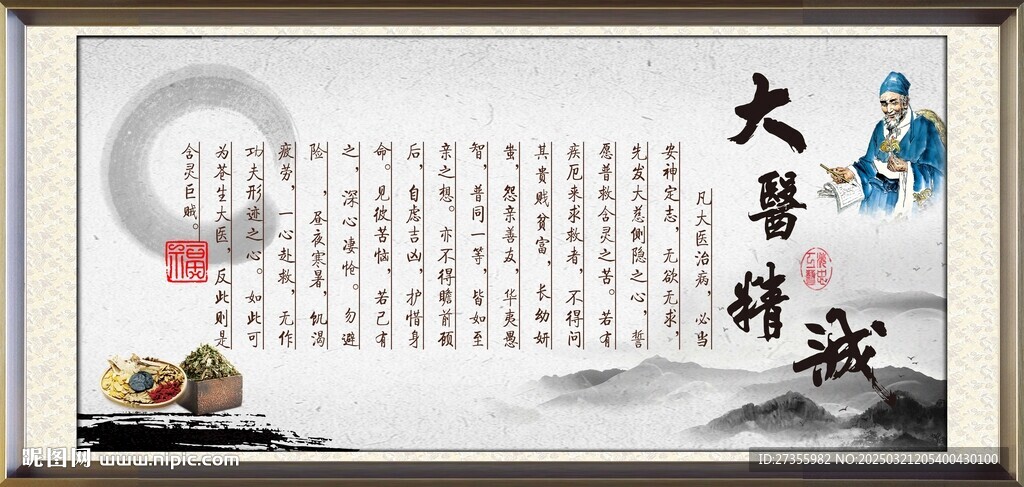 大醫精誠
凡大医治病，必当
安神定志，无欲无求，
先发大慈侧隐之心，誓
愿普救含灵之苦。若有
疾厄来求救者，不得问
其贵贱贫富，长幼妍
蚩，怨亲善友，华夷愚
智，普同一等，皆如至
亲之想。亦不得瞻前顾
后，自虑吉凶，护惜身
命。见彼苦恼，若己有
之，深心凄怆。勿避
险，昼夜寒暑，饥渴
疲劳，一心赴救，无作
功夫形迹之心。如此可
为苍生大医，反此则是
含灵巨贼。
福
昵图网 www.nipic.com
ID:27355982 NO:20250321205400430100